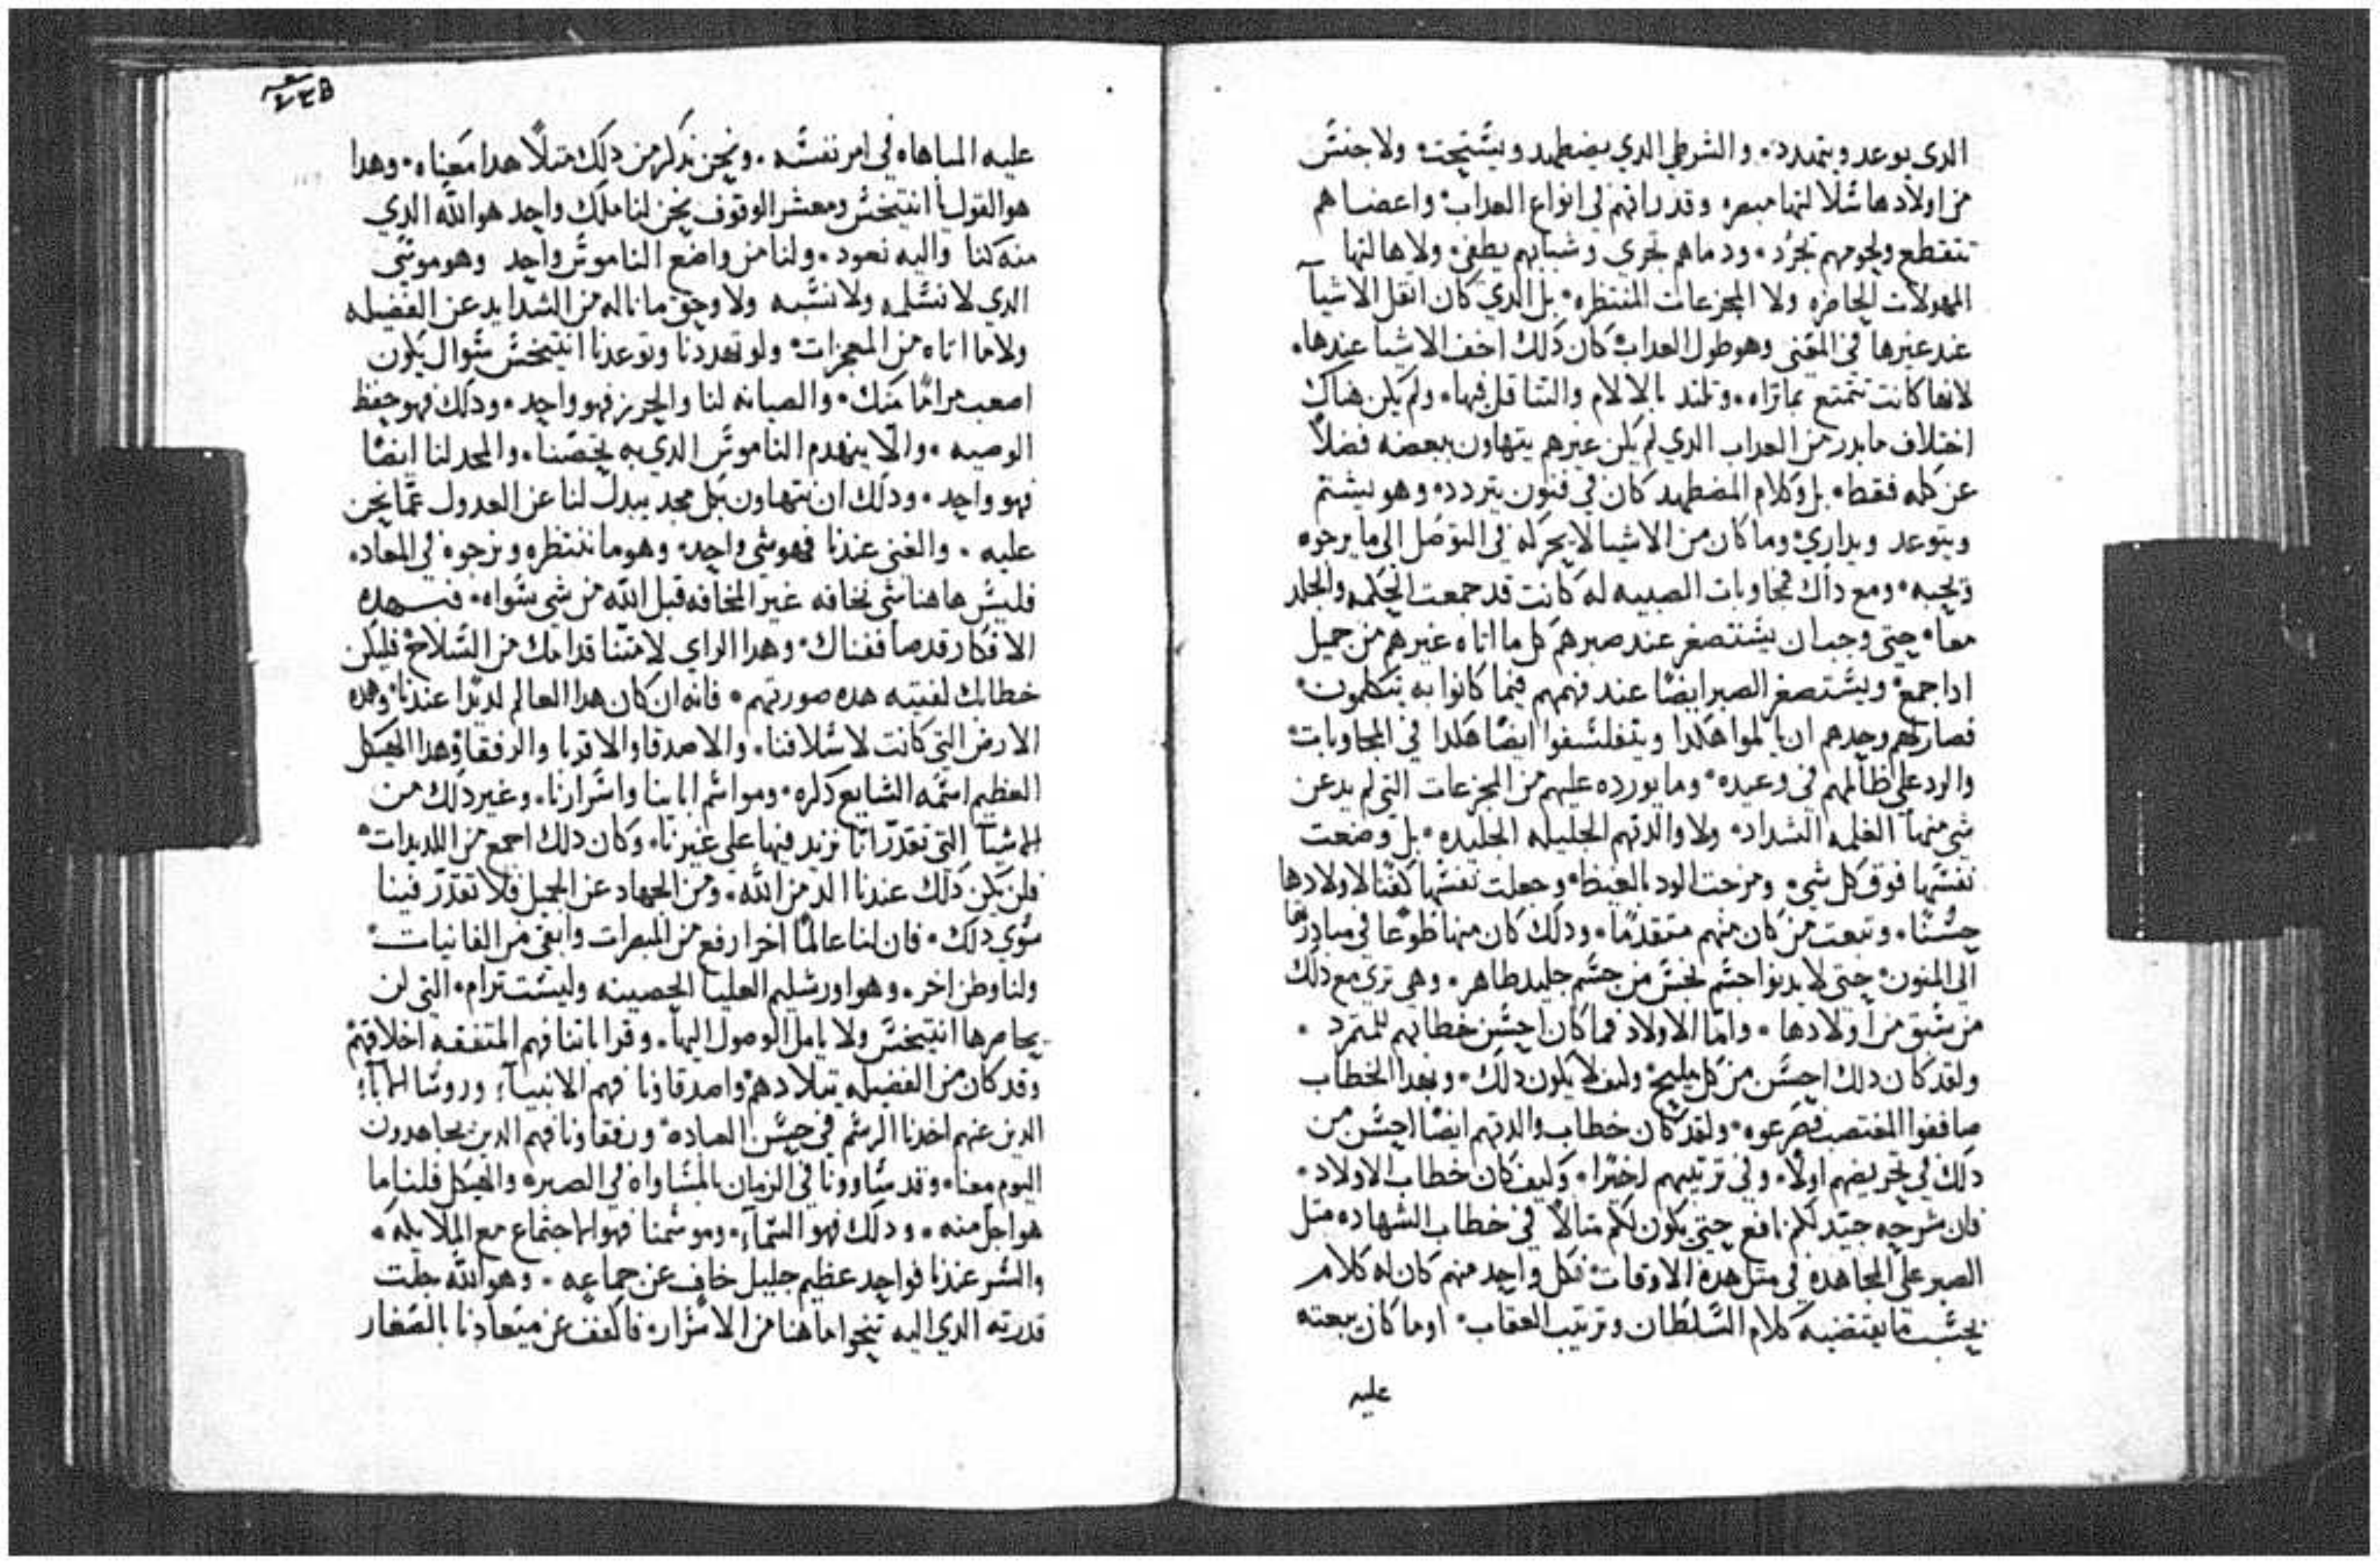 الدى يوعد ويتهدد۰ والشرطي الدي يضطهد ويستحت۰ ولا جنس
من اولادها شلالتها مبصره وقد راتهم في انواع العداب۰ واعضاهم
تتقطع ولحومهم تجرد۰ ودماهم تجري وشبابهم يطفي۰ ولا هالتها
المهولات الحاضره ولا المجزعات المنتظره۰ بل الدي كان اتقل الاشيآ
عند غيرها في المعني وهو طول العداب۰ كان دلك اخف الاشيا عندها۰
لانها كانت تتمتع بما تراه۰ وتلتد بالالام والتتاقل فيها۰ ولم يكن هناك
اختلاف ما بدر من العداب الدي لم يكن غيرهم يتهاون ببعضه فضلاً
عن كله فقط۰ بل وكلام المضطهد كان في فنون يتردد۰ وهو يشتم
ويتوعد ويداري۰ وما كان من الاشيا لا يحركه في التوصل الي ما يرجوه
ويحبه۰ ومع داك فمجاوبات الصبيه له كانت قد جمعت الحكمه والجلد
معا۰ حتي وجب ان يستصغر عند صبرهم كل ما اتاه غيرهم من جميل
ادا جمع۰ ويستصغر الصبر ايضًا عند فهمهم فيما كانوا به يتكلمون۰
فصار لهم وحدهم ان يالموا هكدا ويتفلسفوا ايضًا هكدا في المجاوبات۰
والرد علي ظالمهم في وعيده۰ وما يورده عليهم من المجزعات التي لم يدعن
شي منها الغلمه الشداد۰ ولا والدتهم الجليله الجليده۰ بل وضعت
نفسها فوق كل شي۰ ومزجت الود بالغيظ۰ وجعلت نفسها كفنًا لاولادها
حسنًا۰ وتبعت من كان منهم متقدمًا۰ ودلك كان منها طوعًا في مبادرتها
الي المنون۰ حتي لا يدنوا جسم نجس من جسم جليد طاهر۰ وهي تري مع دلك
من سبق من اولادها۰ وامّا الاولاد فما كان احسن خطابهم للمتمرد۰
ولقد كان دلك احسن من كل مليح۰ وكيف لا يكون دلك۰ وبهدا الخطاب
صاففوا المغتصب فصرعوه۰ ولقد كان خطاب والدتهم ايضًا احسن من
دلك في تحريضهم اولاً۰ وفي ترتيبهم اخيرًا۰ وكيف كان خطاب الاولاد۰
فان شرحه جيّد لكم نافع حتي يكون لكم متالاً في خطاب الشهاده متل
الصبر علي المجاهده في متل هده الاوقات۰ فكل واحد منهم كان له كلام
بحسب ما يقتضيه كلام السلطان وترتيب العقاب۰ او ما كان يبعته
عليه
عليه المباهاه في امر نفسه۰ ونحن ندكر من دلك متلاً هدا معناه۰ وهدا
هو القول يا انتيخس ومعشر الوقوف نحن لنا ملك واحد هو الله الدي
منه كنا واليه نعود۰ ولنا من واضع الناموس واحد وهو موسي
الدي لا نسلمه ولا نسبه ولا وحق ما ناله من الشدايد عن الفضيله
ولا ما اتاه من المعجزات۰ ولو تهددنا وتوعدنا انتيخس سوال يكون
اصعب مرامًا منك۰ والصيانه لنا والحريز فهو واحد۰ ودلك فهو حفظ
الوصيه۰ والّا ينهدم الناموس الدي به يحصننا۰ والمجد لنا ايضًا
فهو واحد۰ ودلك ان نتهاون بكل مجد يبدل لنا عن العدول عمّا نحن
عليه۰ والغني عندنا فهو شي واحد۰ وهو ما ننتظره ونرجوه في المعاد۰
فليس هاهنا شي نخافه غير المخافه قبل الله من شي سواه۰ فبهده
الافكار قد صاففناك۰ وهدا الراي لامتنا قدامك من السلاح۰ فليكن
خطابك لفتيه هده صورتهم۰ فانه ان كان هدا العالم لديدا عندنا۰ وهده
الارض التي كانت لاسلافنا۰ والاصدقا والاقربا والرفقا۰ وهدا الهيكل
العظيم اسمه الشايع دكره۰ ومواسم ابائنا واسرارنا۰ وغير دلك من
الاشيآ التي تقدر انا نزيد فيها علي غيرنا۰ وكان دلك اجمع من اللديدات۰
فلن يكن دلك عندنا الد من الله۰ ومن الجهاد عن الجميل فلا تقدر فينا
سوي دلك۰ فان لنا عالمًا اخر ارفع من المبصرات وابقي من الفانيات۰
ولنا وطن اخر۰ وهو اورشليم العليا الحصينه وليست ترام۰ التي لن
يحاصرها انتيخس ولا يامل الوصول اليها۰ وقراباتنا فهم المتفقه اخلاقهم
وقد كان من الفضيله تيلادهم واصدقاونا فهم الانبيآ۰ وروسا الابآ۰
الدين عنهم اخدنا الرسم في حسن العباده۰ ورفقاونا فهم الدين يجاهدون
اليوم معنا۰ وقد ساوونا في الزمان بالمساواه في الصبر۰ والهيكل فلنا ما
هو اجل منه۰ ودلك فهو السمآ۰ وموسمنا فهو الاجتماع مع الملايكه۰
والسر عندنا فواحد عظيم جليل خاف عن جماعه۰ وهو الله جلت
قدرته الدي اليه تنحوا ما هنا من الاسرار۰ فاكفف عن ميعادنا بالصغار